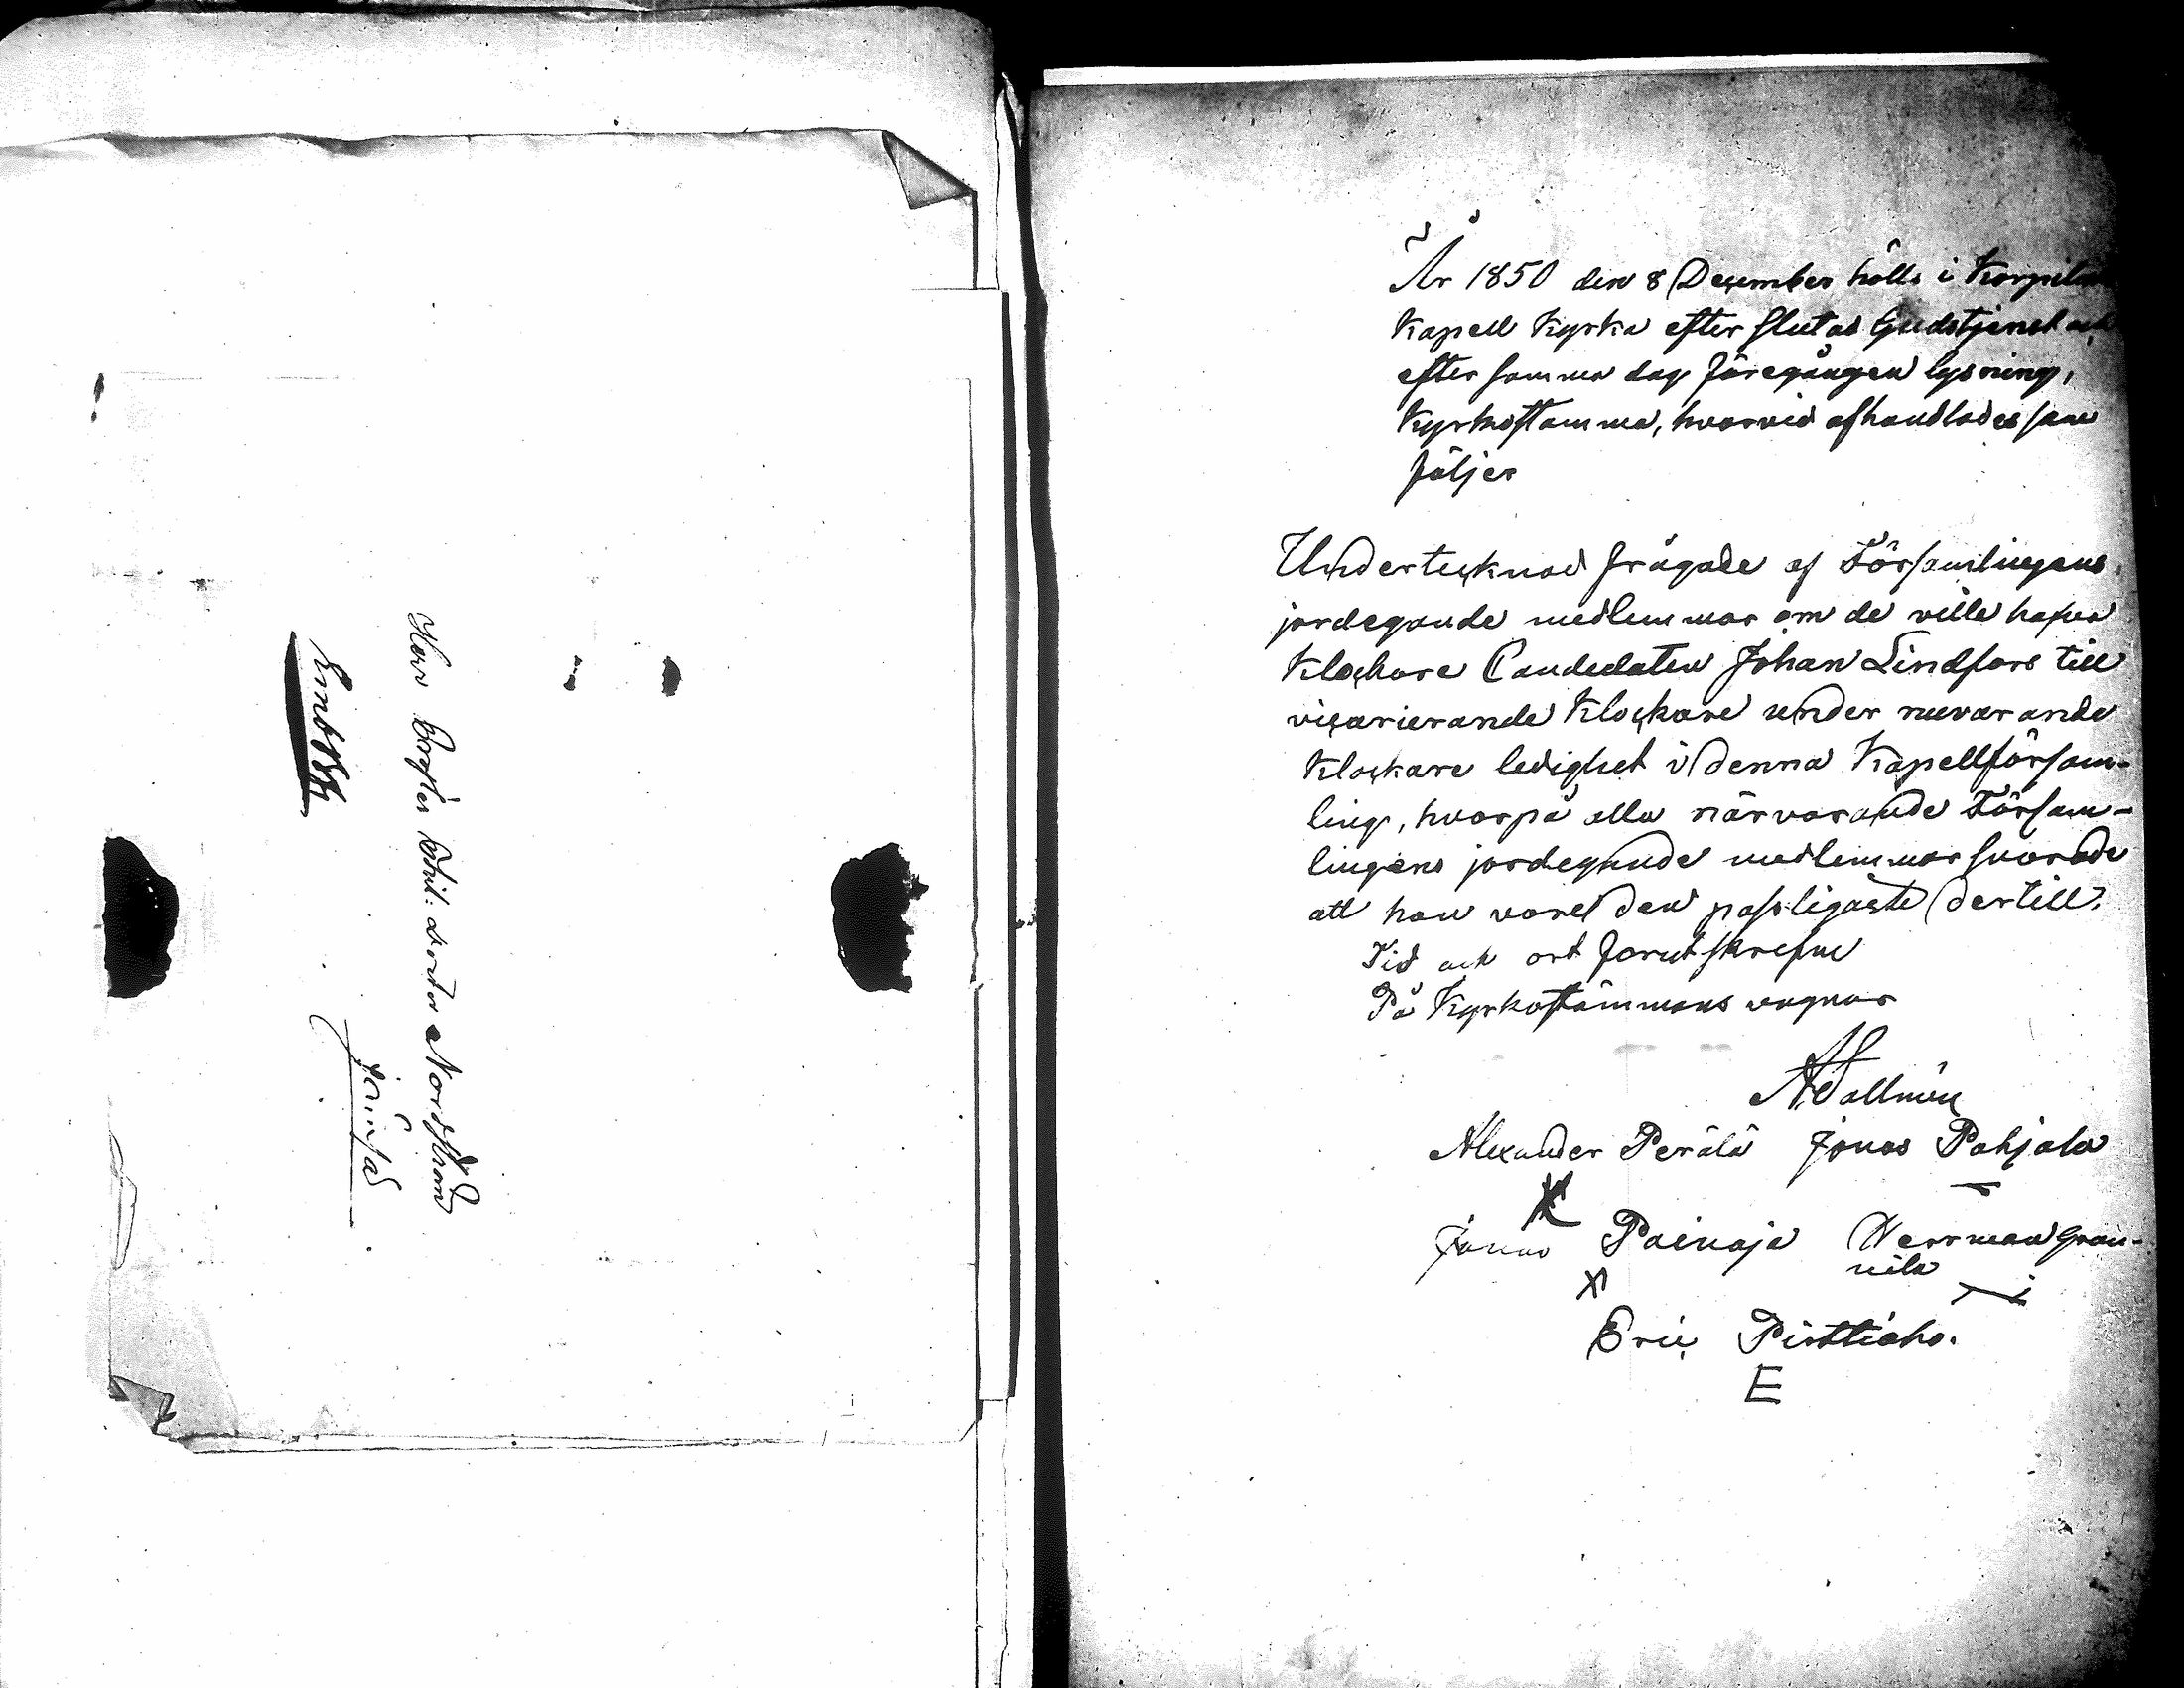 Herr Pro Phil: doctor Nordstrand
Embtsbf
Jerinsad
År 1850 den 8 December hölls i Korpilax
Kapell Kyrka efter slutad Gudstjenst och
efter samma dag föregången lysning,
Kyrkostämma, hvarvid afhandlades som
följer
Undertecknad frågade af Församlingens
jordegande medlemmar om de ville hafva
Klockare Candidaten Johan Lindfors till
vicarierande Klockare under nuvarande
Klockare ledighet i denna Kapellförsam-
ling, hvarpå alla närvarande Försam-
lingens jordegande medlemmar svarade
att han vore den passligaste dertill.
Tid och ort forutskrefne
På Kyrkostämmans vagnar
A Tallmén
Alexander Perälä Jonas Pohjala
Jonas Painaja Herrman Gran-
nila
Eric Pirttiaho.
E